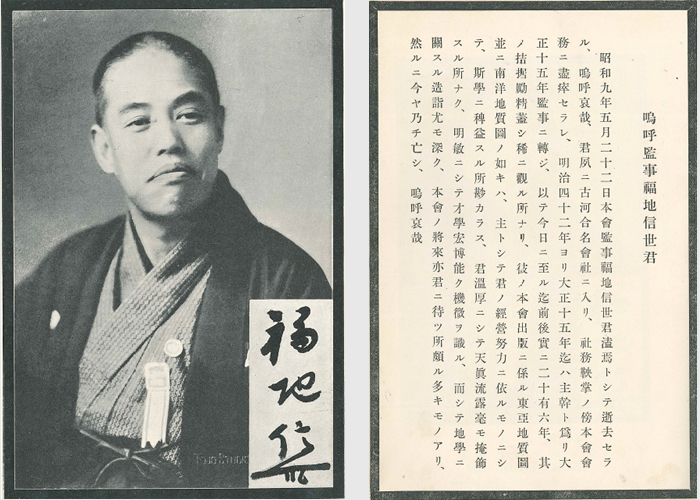 福地信世
嗚呼監事福地信世君
昭和九年五月二十二日本會監事福地信世君溘焉トシテ逝去セラ
ル、嗚呼哀哉、君夙ニ古河合名會社ニ入リ、社務鞅掌ノ傍本會會
務ニ盡瘁セラレ、明治四十二年ヨリ大正十五年迄ハ主幹ト爲リ大
正十五年監事ニ轉ジ、以テ今日ニ至ル迄前後實ニ二十有六年、其
ノ拮据勵精蓋シ稀ニ觀ル所ナリ、彼ノ本會出版ニ係ル東亞地質圖
並ニ南洋地質圖ノ如キハ、主トシテ君ノ經營努力ニ依ルモノニシ
テ、斯學ニ稗益スル所尠カラス、君溫厚ニシテ天眞流露毫モ掩飾
スル所ナク、明敏ニシテ才學宏博能ク機微ヲ識ル、而シテ地學ニ
關スル造詣尤モ深ク、本會ノ將來亦君ニ待ツ所頗ル多キモノアリ、
然ルニ今ヤ乃チ亡シ、嗚呼哀哉